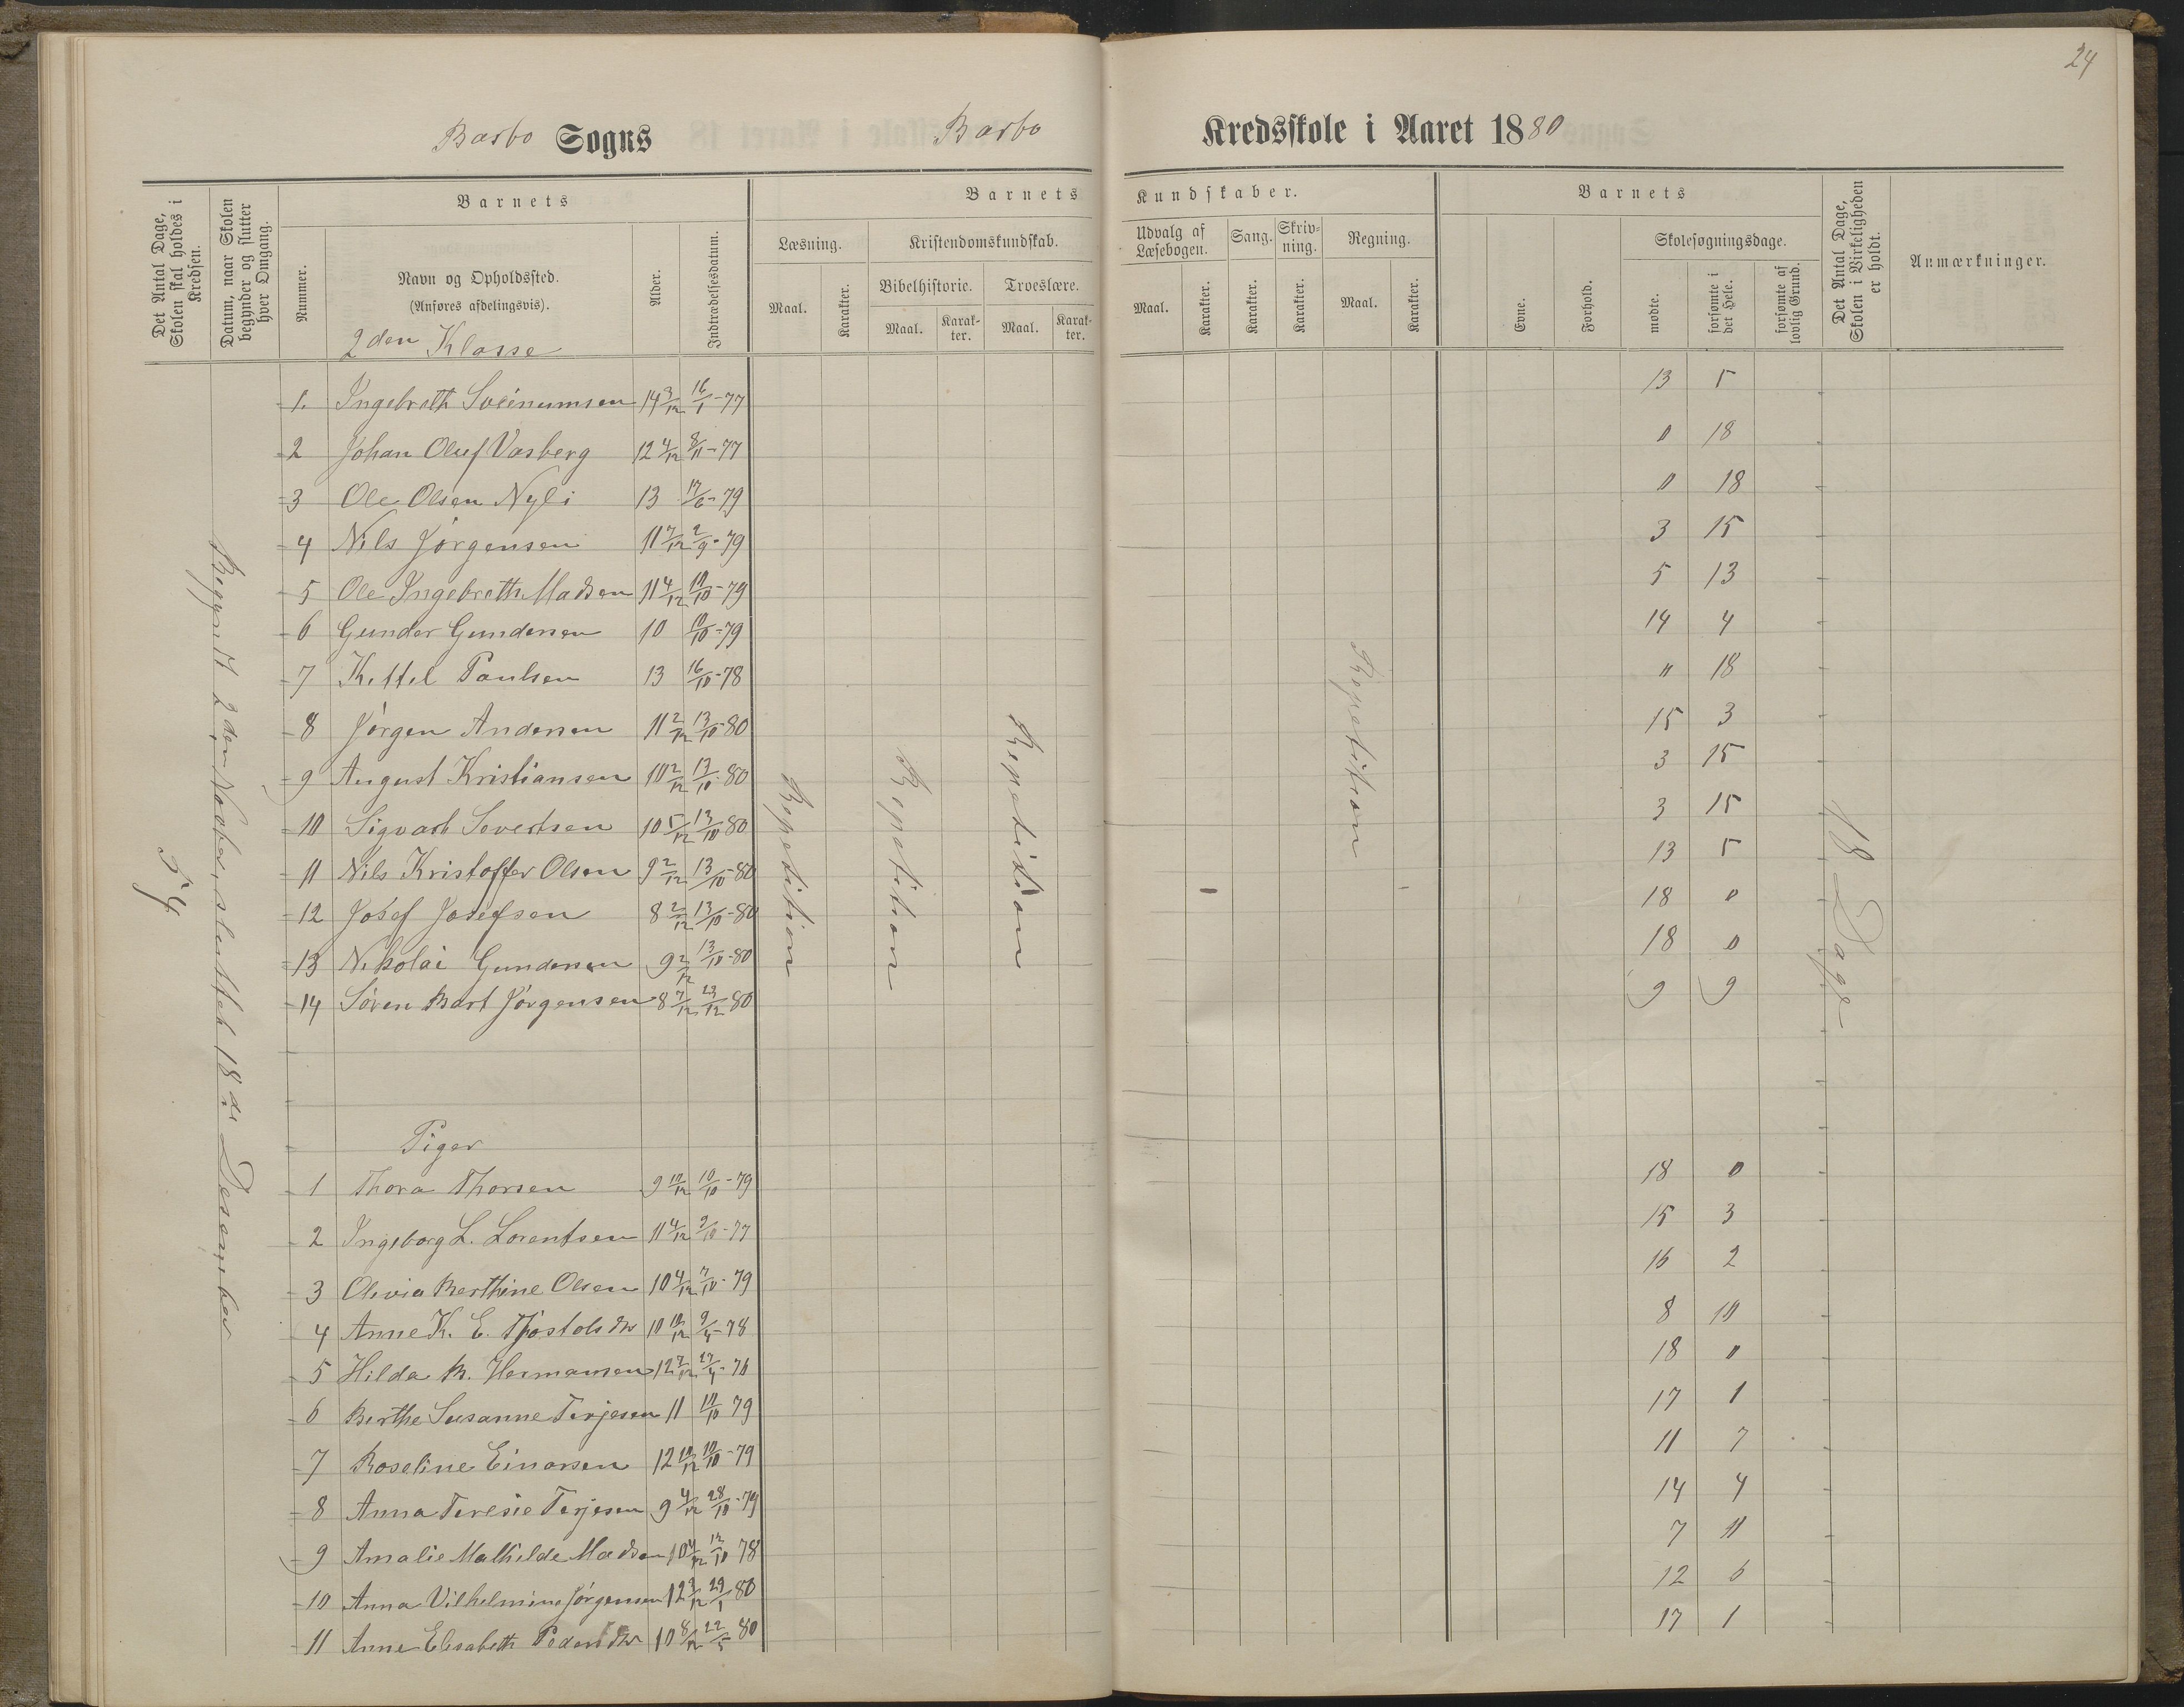 24
Barbo Sogns Barbo Kredsskole i Aaret 1880
Det Antal Dage, Skolen skal holdes i Kredsen.
Datum, naar Skolen begynder og slutter hver Omgang.
Nummer.
Barnets
Navn og Opholdssted.
(Anføres afdelingsvis).
2den Klasse
Alder.
Indtrædelsesdatum.
Barnets Kundskaber.
Læsning.
Maal. Karakter.
Kristendomskundskab.
Bibelhistorie. Troeslære.
Maal. Karakter. Maal. Karakter.
Udvalg af Læsebogen.
Maal. Karakter.
Sang.
Karakter.
Skrivning.
Karakter.
Regning.
Maal. Karakter.
Barnets
Evne.
Forhold.
Skolesøgningsdage.
mødte. forsømte i det Hele. forsømte af lovlig Grund.
Det Antal Dage, Skolen i Virkeligheden er holdt.
Anmærkninger.
54
Begynt 2den Novber, sluttet 18de Desember
1. Ingebreth Sveinumsen 14 3/12 16/1-77 13 5
2 Johan Oluf Vasberg 12 4/12 8/11-77 0 18
3 Ole Olsen Nyli 13 17/6-79 0 18
4 Nils Jörgensen 11 7/12 2/9-79 3 15
5 Ole Ingebreth Madsen 11 4/12 10/10-79 5 13
6 Gunder Gundersen 10 10/10-79 14 4
7 Kittil Paulsen 13 16/10-78 " 18
8 Jörgen Andersen 11 2/12 13/10-80 15 3
9 August Kristiansen 10 2/12 13/10-80 3 15
10 Sigvart Severtsen 10 5/12 13/10 80 3 15
11 Nils Kristoffer Olsen 9 2/12 13/10-80 13 5
12 Josef Josefsen 8 2/12 13/10-80 18 0
13 Nikolai Gundersen 9 2/12 13/10-80 18 0
14 Sören Bart Jörgensen 8 7/12 23/12 80 9 9
Repetition
Repetition
Repetition
Repetition
18 Dage
Piger
1 Thora Thorsen 9 10/12 10/10-79 18 0
2 Ingeborg L. Lorentsen 11 4/12 9/10-77 15 3
3 Olivia Berthine Olsen 10 4/12 7/10-79 16 2
4 Anne K. E. Tjöstolsdtr 10 10/12 9/4-78 8 10
5 Hilda B. Hermansen 12 7/12 27/4-76 18 0
6 Berthe Susanne Terjesen 11 10/10 79 17 1
7 Roseline Einarsen 12 10/12 10/10-79 11 7
8 Anna Teresie Terjesen 9 4/12 28/10-79 14 4
9 Amalie Mathilde Madsen 10 4/12 12/10 78 7 11
10 Anna Vilhelmine Jörgensen 12 3/12 29/1 80 12 6
11 Anne Elisabeth Pedersdtr 10 8/12 22/5 80 17 1